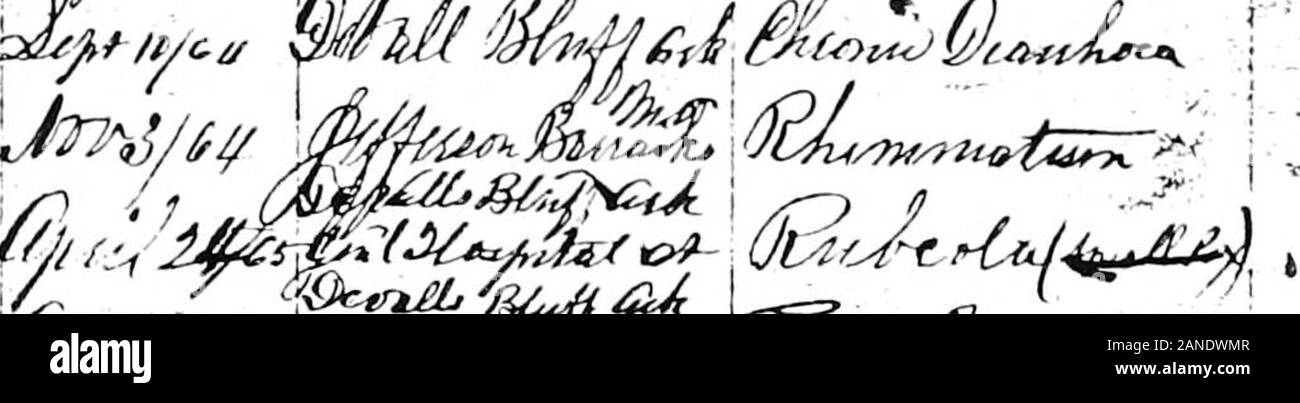 Sept 10/64 Devall Bluff Ark Chronic Diarrhoea
Mo
Nov 3/64 Jefferson Barracks Rhummatism
Devalls Bluff Ark
April 24/65 Gen'l Hospital at Rubeola (Small Pox)
Devalls Bluff Ark
alamy
Image ID: 2ANDWMR
www.alamy.com